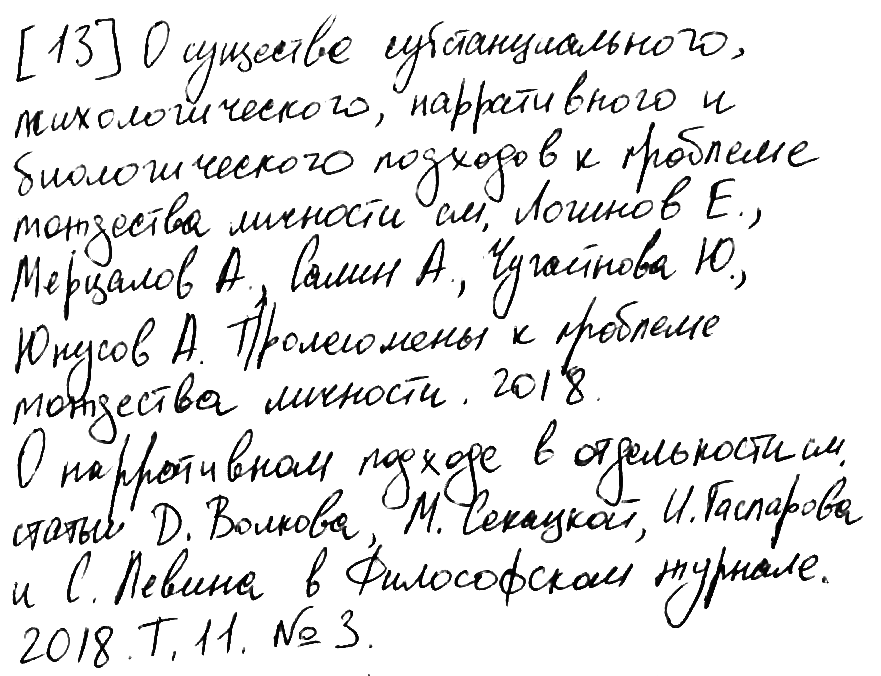 [13] О существе субстанциального,
психологического, нарративного и
биологического подходов к проблеме
тождества личности см. Логинов Е.,
Мерцалов А., Салин А., Чугайнова Ю.,
Юнусов А. Пролегомены к проблеме
тождества личности. 2018.
О нарративном подходе в отдельности см.
статьи Д. Волкова, М. Секацкой, И. Гаспарова
и С. Левина в Философском журнале.
2018. Т. 11. № 3.